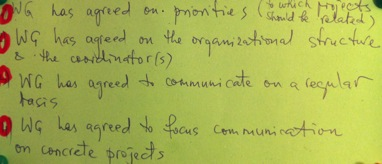 WG has agreed on priorities (to which projects
should be related)
WG has agreed on the organizational structure
& the coordinator(s)
WG has agreed to communicate on a regular
basis
WG has agreed to focus communication
on concrete projects